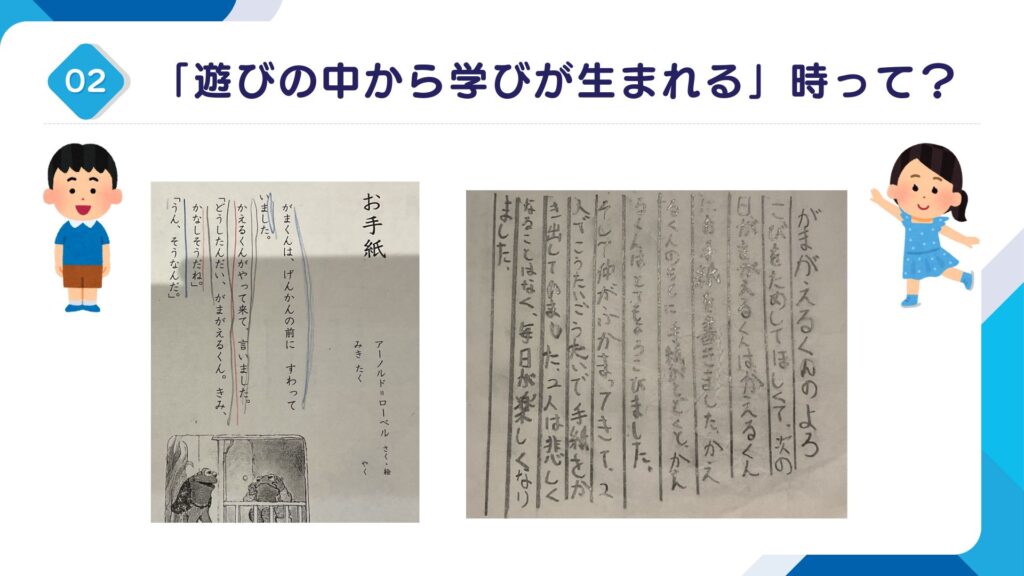 02
「遊びの中から学びが生まれる」時って？
お手紙
アーノルド＝ローベル さく・絵
みき たく やく
がまくんは、げんかんの前に すわって
いました。
かえるくんがやって来て、言いました。
「どうしたんだい、がまがえるくん。きみ、
かなしそうだね。」
「うん、そうなんだ。」
がまがえるくんのよろ
こびをためしてほしくて、次の
日がまがえるくんはかえるくん
にお手紙を書きました。かえ
るくんのもとに手紙がとどくと、かえ
るくんはとてもよろこびました。
そして仲がふかまってきて、2
人でこうたいごうたいで手紙をか
き出してゆました。2人は悲しく
なることはなく、毎日が楽しくなり
ました。